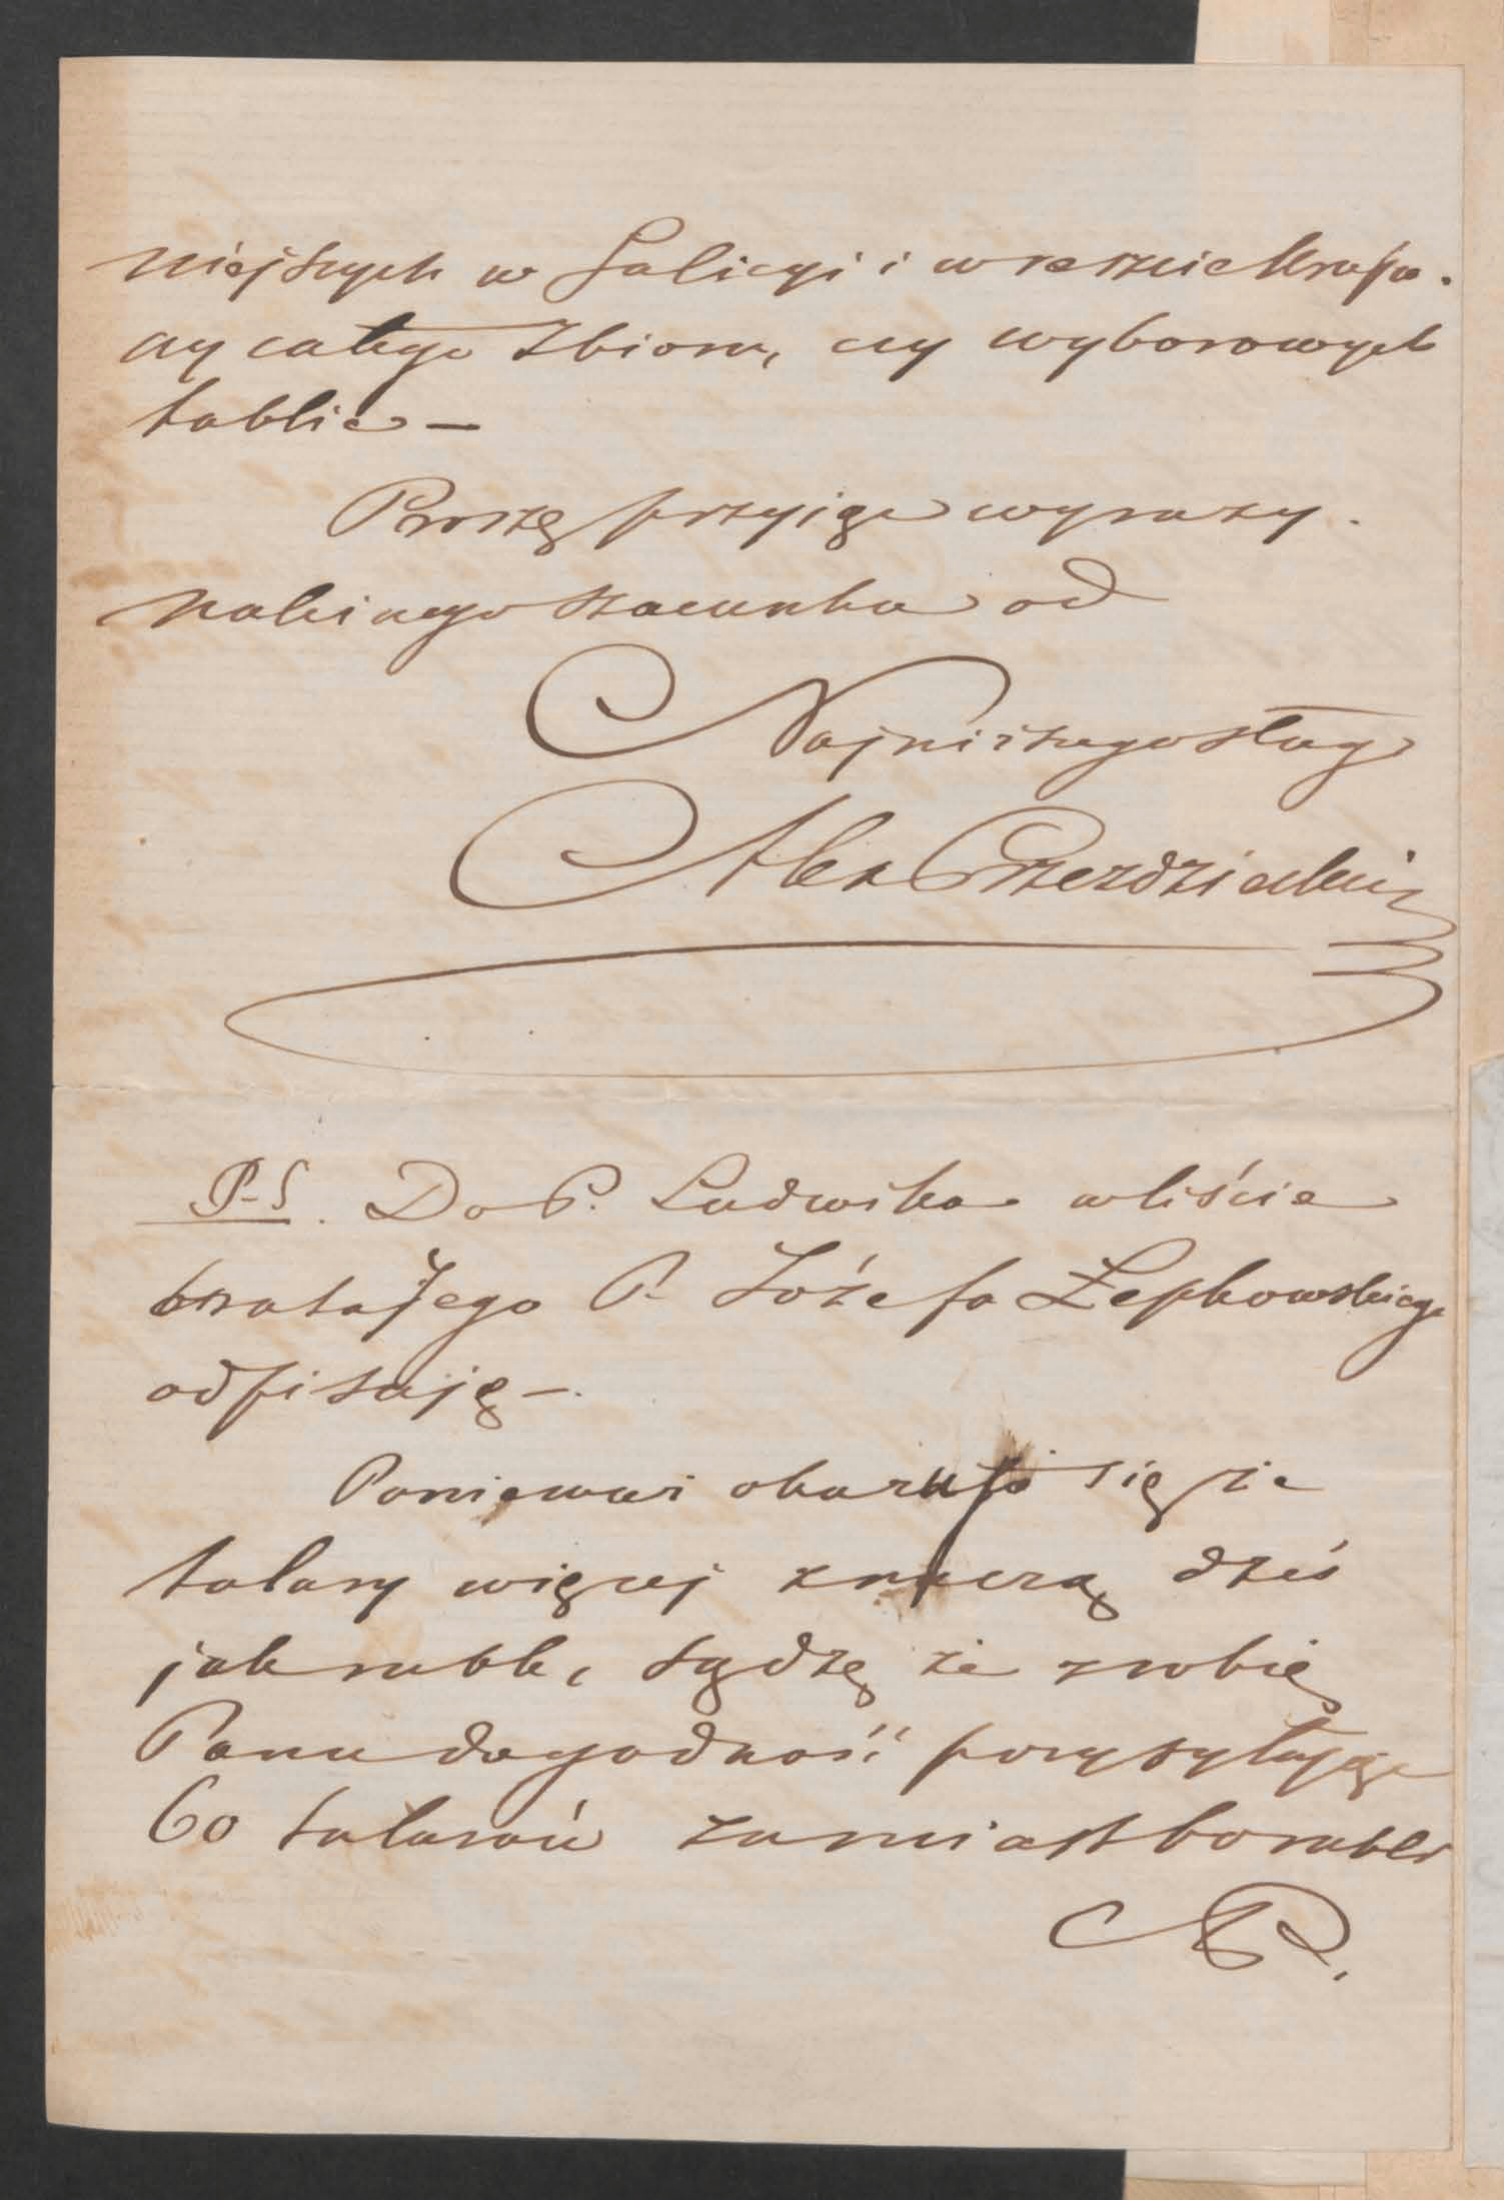 niejszych w Galicyi i w reszcie kraju.
czy całego zbioru, czy wyborowych
tablic —
Proszę przyiąć wyrazy
należnego szacunku od
Najniższego sługi
Alex Przezdziecki
P.S. Do P. Ludwika w liście
brata Jego P. Józefa Łepkowskiego
odpisuję —
Ponieważ okazuje się że
talary więcej znaczą dziś
jak ruble, sądzę że zrobię
Panu dogodność posyłając
60 talarów zamiast 60 rubli
AP.